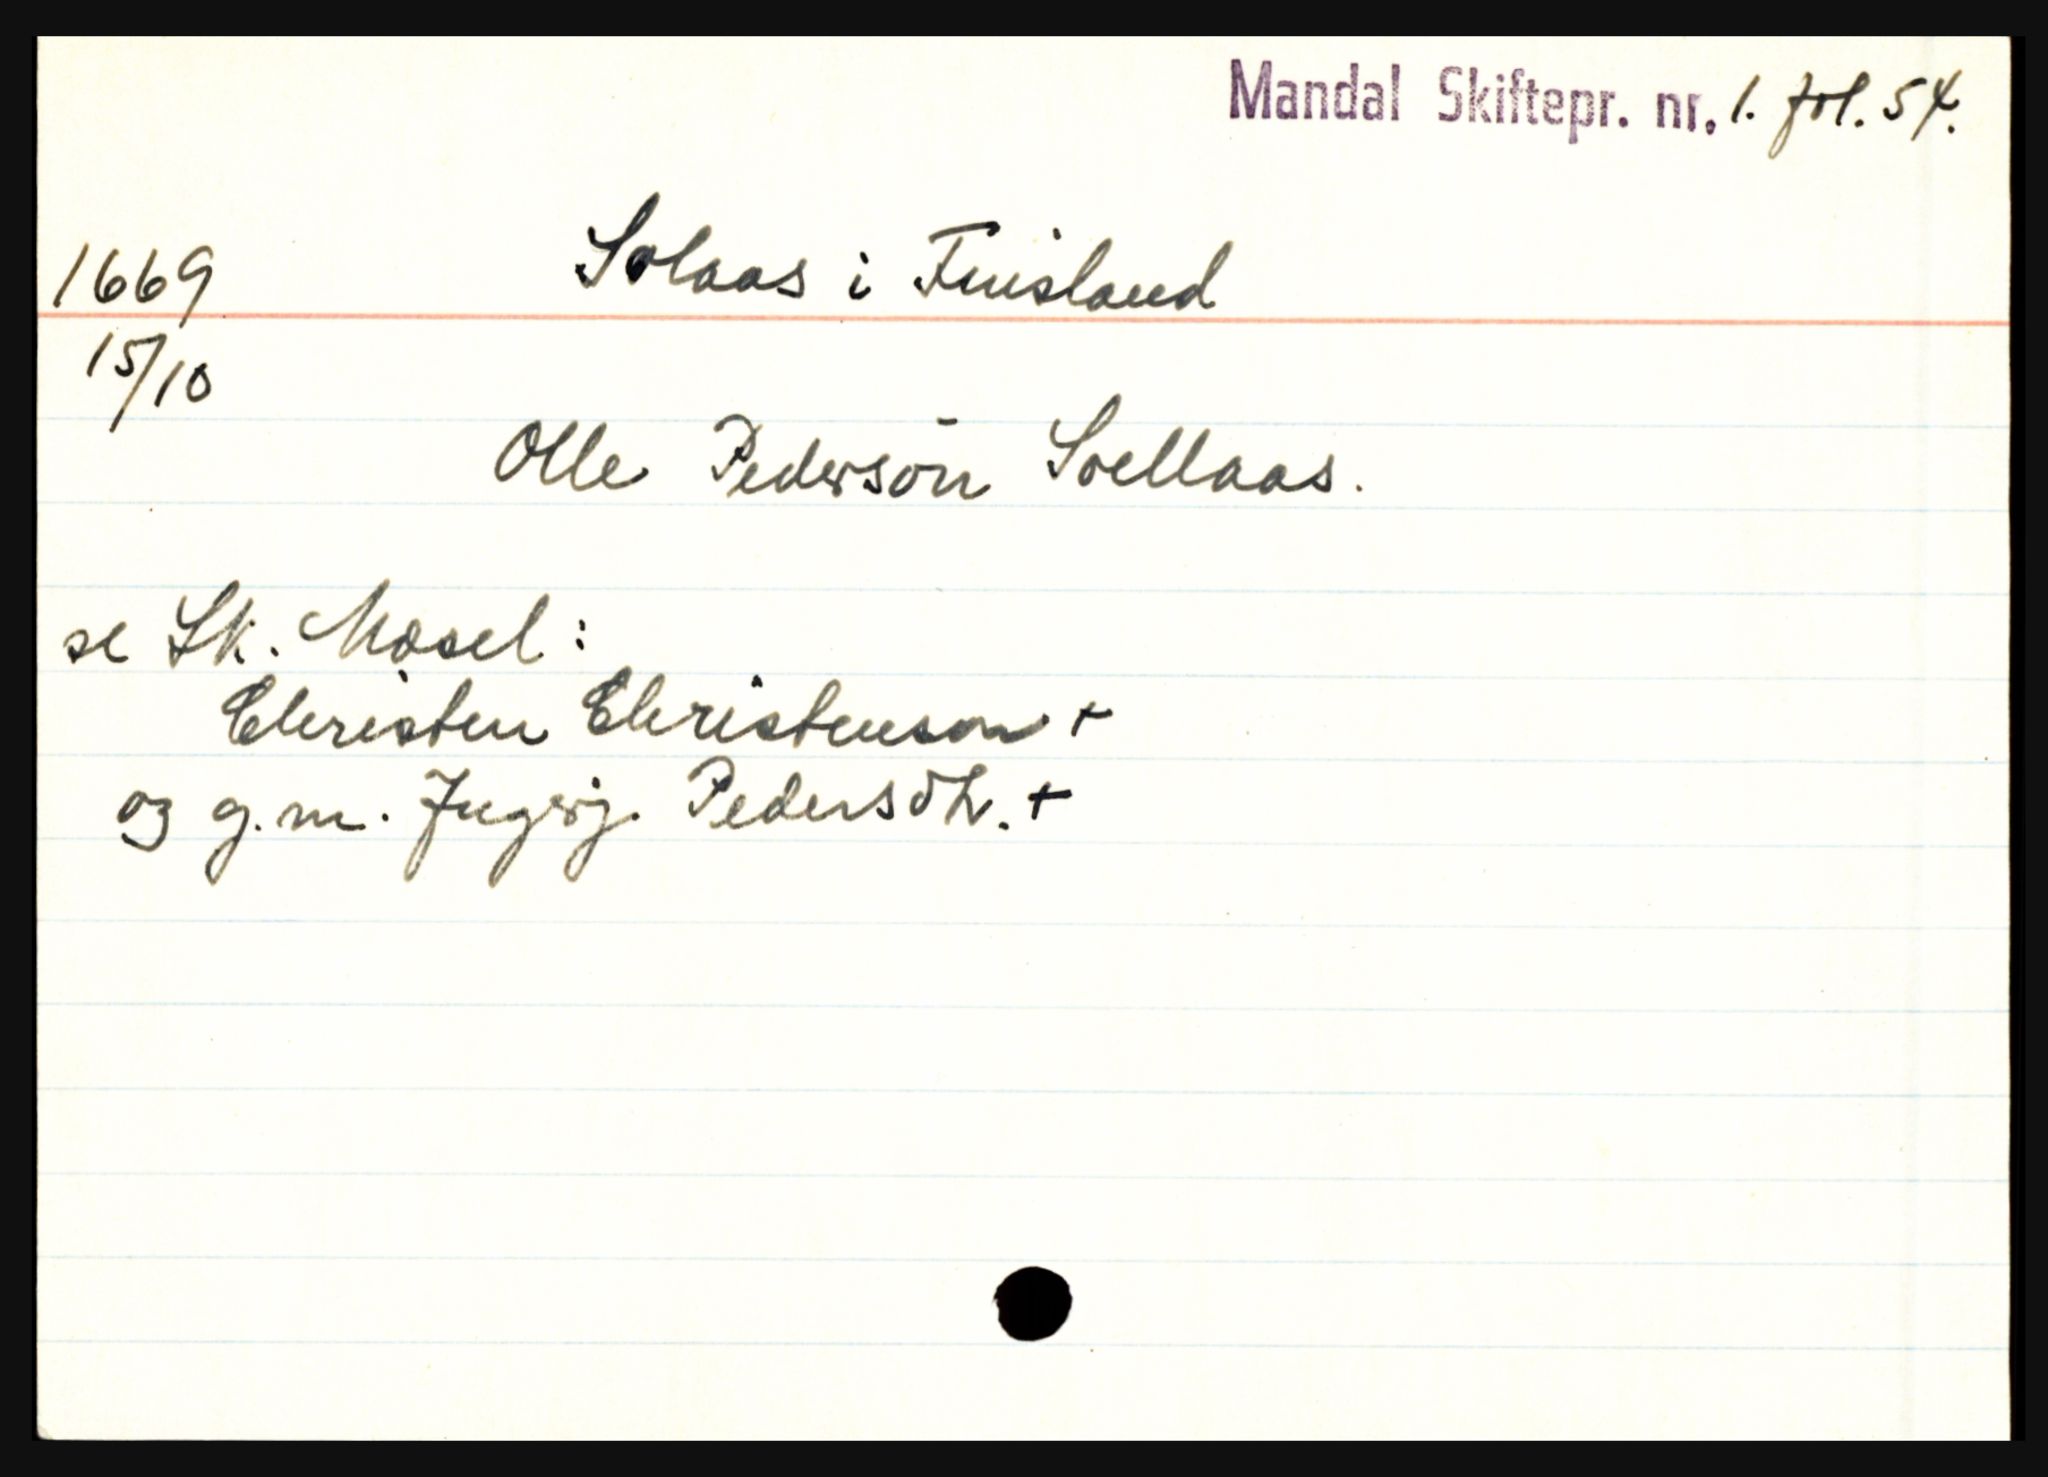 Mandal Skiftepr. nr. 1. fol. 54.
1669 Solaas i Finsland
15/10
Olle Pedersön Soellaas.
se Sk. Mosel:
Christen Christenson +
og g.m. Ingerj. Pedersdt. +